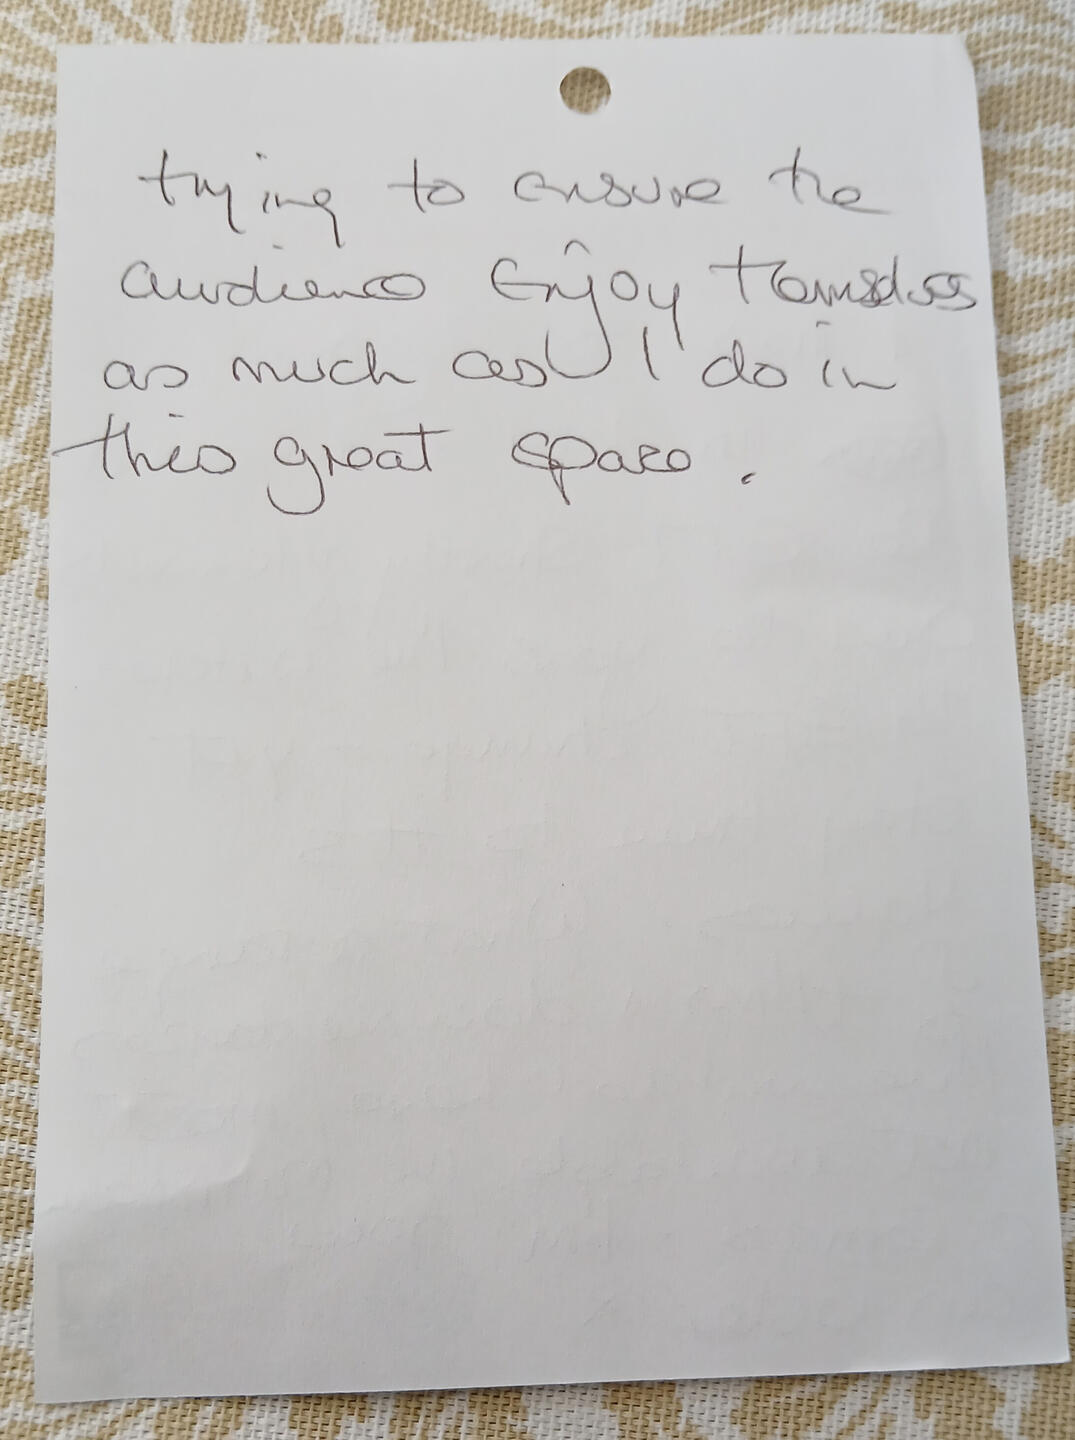 trying to ensure the
audience Enjoy themselves
as much as I do in
this great space.